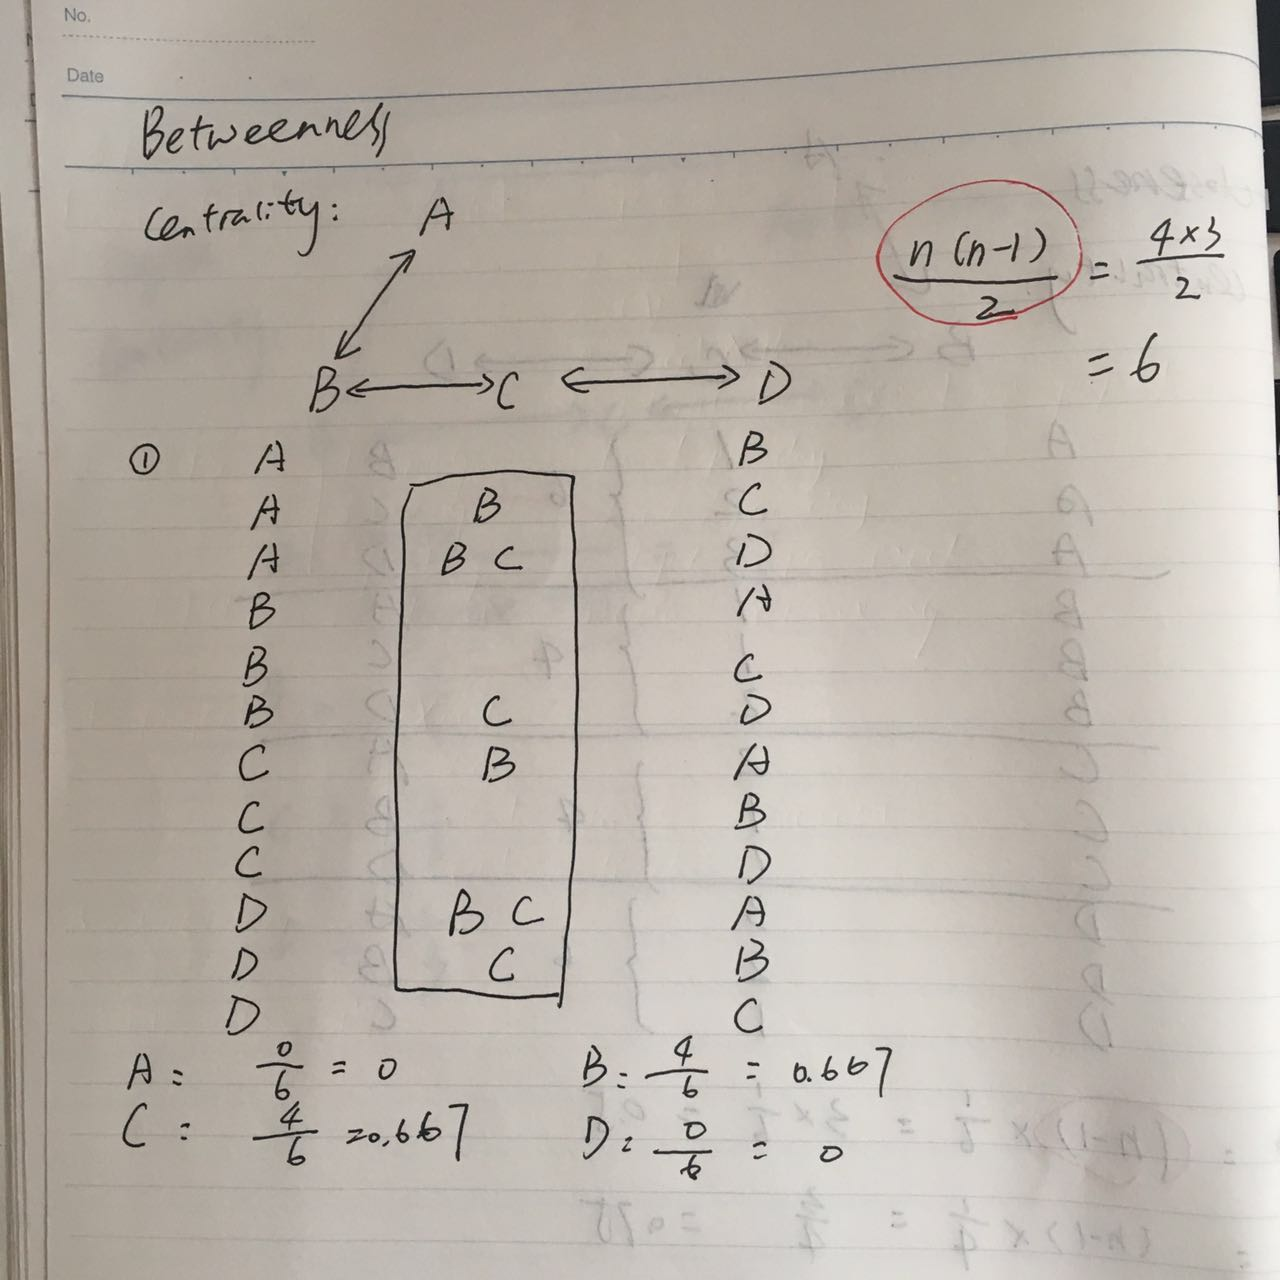 No.
Date
Betweenness
Centrality: A
n (n-1) / 2 = 4 × 3 / 2
= 6
B ↔ C ↔ D
① A B
A B C
A B C D
B A
B C
B C D
C B A
C B
C D
D B C A
D C B
D C
A: 0/6 = 0 B: 4/6 = 0.667
C: 4/6 = 0.667 D: 0/6 = 0